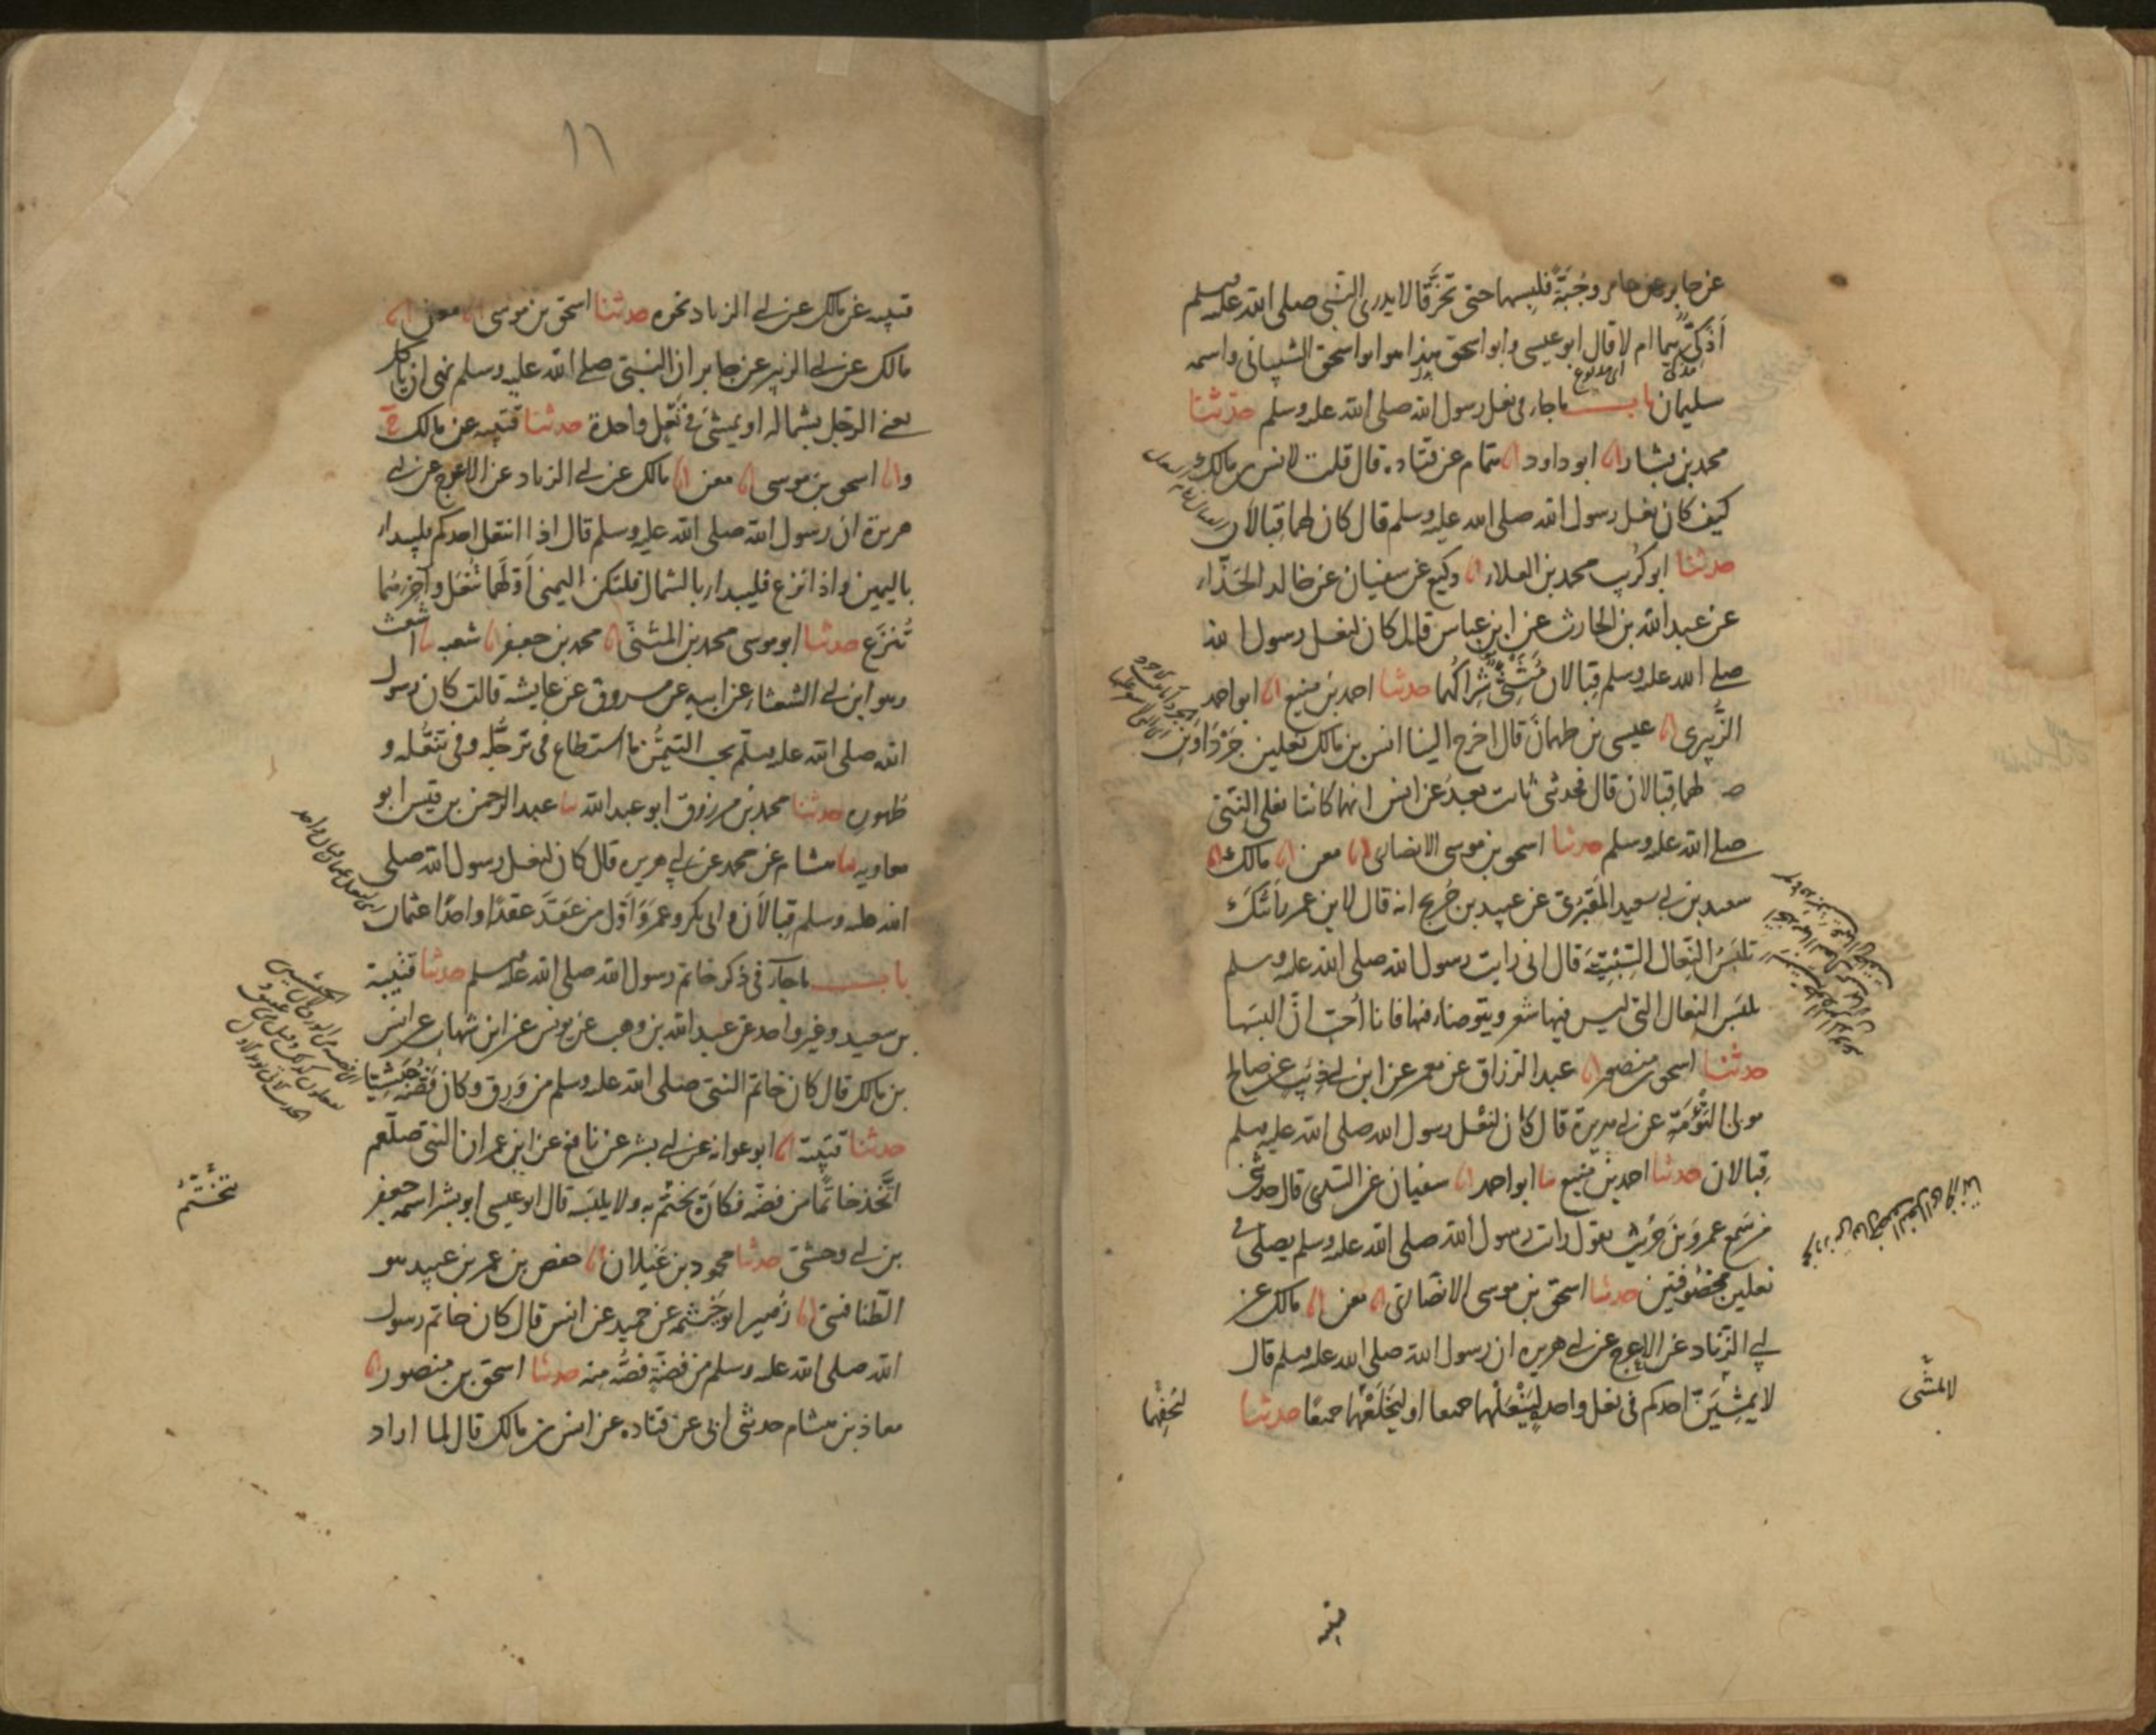 عن جابر عن عامر وجبة فلبسهما حتى تخرقا لا يدرى النبى صلى الله عليه وسلم
أذكى هما ام لا قال ابو عيسى وابو اسحق هذا هو ابو اسحق الشيبانى واسمه
سليمان باب ما جاء فى نعل رسول الله صلى الله عليه وسلم حدثنا
محمد بن بشار انا ابو داود انا همام عن قتاده قال قلت لانس بن مالك
كيف كان نعل رسول الله صلى الله عليه وسلم قال كان لهما قبالان
حدثنا ابو كريب محمد بن العلاء انا وكيع عن سفيان عن خالد الحذاء
عن عبد الله بن الحارث عن ابن عباس قال كان لنعل رسول الله
صلى الله عليه وسلم قبالان مثنى شراكهما حدثنا احمد بن منيع انا ابو احمد
الزبيرى انا عيسى بن طهمان قال اخرج الينا انس بن مالك نعلين جرداوين
لهما قبالان قال فحدثنى ثابت بعد عن انس انهما كانتا نعلى النبى
صلى الله عليه وسلم حدثنا اسحق بن موسى الانصارى انا معن انا مالك انا
سعيد بن ابى سعيد المقبرى عن عبيد بن جريج انه قال لابن عمر رأيتك
تلبس النعال السبتية قال انى رايت رسول الله صلى الله عليه وسلم
يلبس النعال التى ليس فيها شعر ويتوضا فيها فانا أحب ان البسها
حدثنا اسحق بن منصور انا عبد الرزاق عن معمر عن ابن ابى ذئب عن صالح
مولى التؤمة عن ابى هريرة قال كان لنعل رسول الله صلى الله عليه وسلم
قبالان حدثنا احمد بن منيع نا ابو احمد انا سفيان عن السدى قال حدثنى
من سمع عمرو بن حريث يقول رايت رسول الله صلى الله عليه وسلم يصلى فى
نعلين مخصوفتين حدثنا اسحق بن موسى الانصارى انا معن انا مالك عن
ابى الزناد عن الاعرج عن ابى هريره ان رسول الله صلى الله عليه وسلم قال
لا يمشين احدكم فى نعل واحد لينعلهما جميعا او ليخلعهما جميعا حدثنا
لا يمشى
ليحفهما
قتيبه
١٦
قتيبه عن مالك عن ابى الزناد نحوه حدثنا اسحق بن موسى انا معن انا
مالك عن ابى الزبير عن جابر ان النبى صلى الله عليه وسلم نهى ان ياكل
يعنى الرجل بشماله او يمشى فى نعل واحدة حدثنا قتيبه عن مالك ح
وانا اسحق بن موسى انا معن انا مالك عن ابى الزناد عن الاعرج عن ابى
هريرة ان رسول الله صلى الله عليه وسلم قال اذا انتعل احدكم فليبدا
باليمين واذا نزع فليبدا بالشمال فلتكن اليمنى أولهما تنعل وآخرهما
تنزع حدثنا ابو موسى محمد بن المثنى انا محمد بن جعفر انا شعبه نا اشعث
وهو ابن ابى الشعثاء عن ابيه عن مسروق عن عايشه قالت كان رسول
الله صلى الله عليه وسلم يحب التيمن ما استطاع فى ترجله وفى تنعله و
طهوره حدثنا محمد بن مرزوق ابو عبد الله نا عبد الرحمن بن قيس ابو
معاويه نا هشام عن محمد عن ابى هريره قال كان لنعل رسول الله صلى
الله عليه وسلم قبالان وابى بكر وعمر وأول من عقد عقدا واحدا عثمان
باب ما جاء فى ذكر خاتم رسول الله صلى الله عليه وسلم حدثنا قتيبة
بن سعيد وغير واحد عن عبد الله بن وهب عن يونس عن ابن شهاب عن انس
بن مالك قال كان خاتم النبى صلى الله عليه وسلم من ورق وكان فصه حبشيا
حدثنا قتيبة انا ابو عوانه عن ابى بشر عن نافع عن ابن عمر ان النبى صلعم
اتخذ خاتما من فضه فكان يختم به ولا يلبسه قال ابو عيسى ابو بشر اسمه جعفر
بن ابى وحشى حدثنا محمود بن غيلان انا حفص بن عمر بن عبيد هو
الطنافسى انا زهير ابو خيثمه عن حميد عن انس قال كان خاتم رسول
الله صلى الله عليه وسلم من فضة فصه منه حدثنا اسحق بن منصور انا
معاذ بن هشام حدثنى ابى عن قتاده عن انس بن مالك قال لما اراد
يتختم